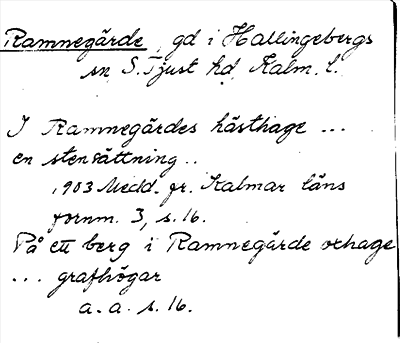 Ramnegärde, gd i Hallingebergs
sn, S. Tjust hd, Kalm. l.
I Ramnegärdes hästhage ...
en stensättning..
1903 Medd. fr. Kalmar läns
fornm. 3, s. 16.
På ett berg i Ramnegärde oxhage
... grafhögar
a. a. s. 16.